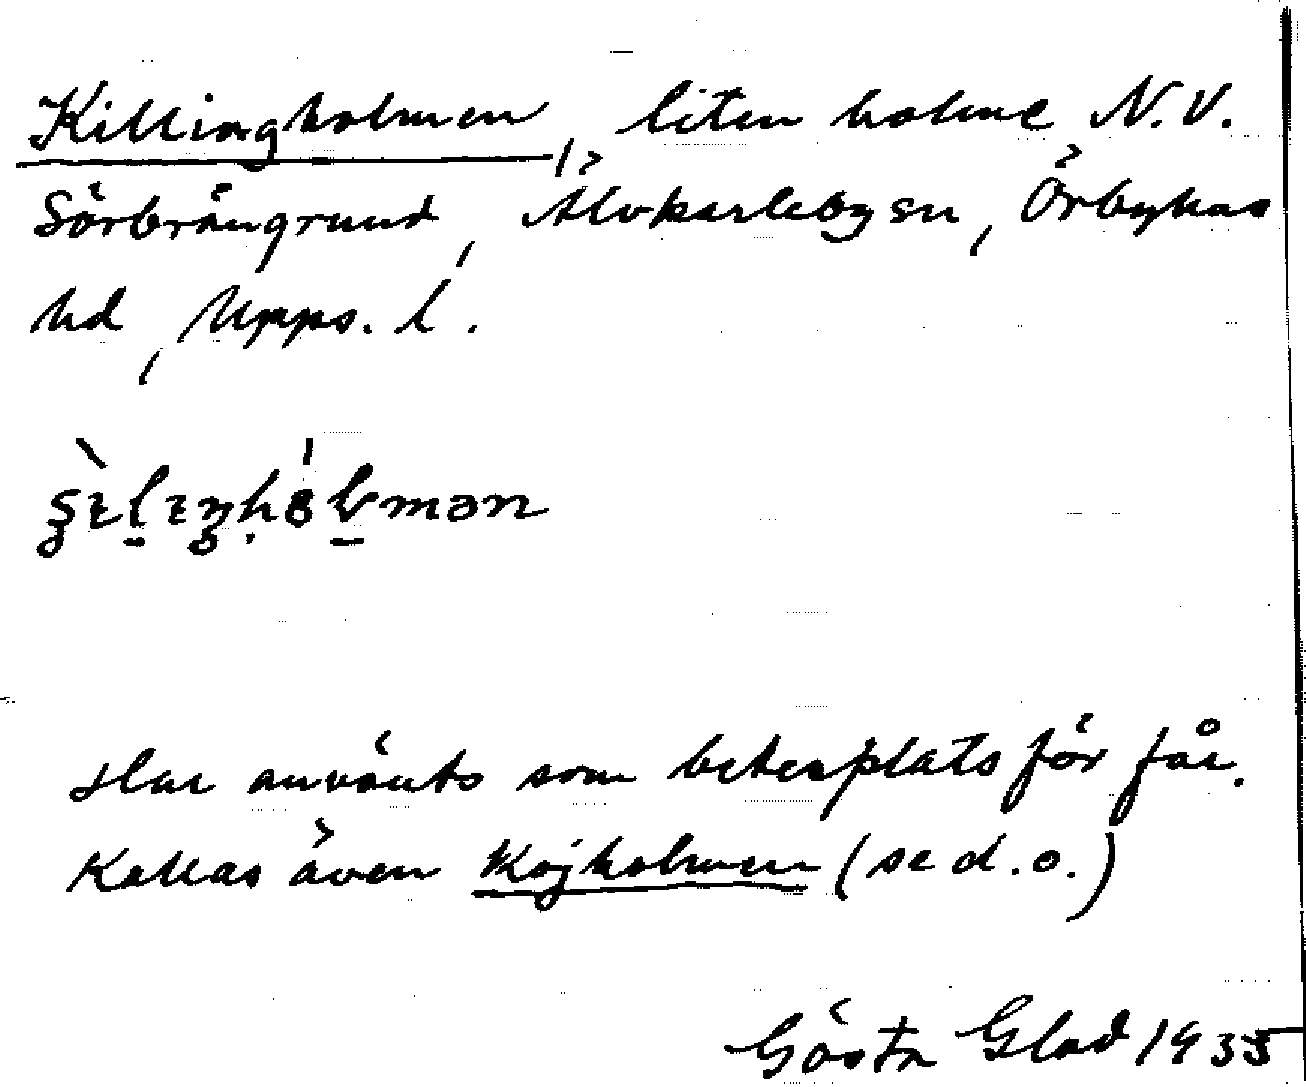 Killingholmen, liten holme N.V.
Sörbrängrund, Älvkarleby sn, Örbyhus
hd, Upps. l.
Har använts som betesplats för får.
Kallas även Kojholmen (se d.o.)
Gösta Glad 1935